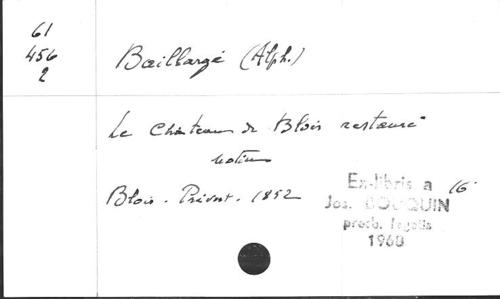 61
456
2
Baillargé (Alph.)
Le Château de Blois restauré
notice
Blois. Prévost. 1852
16°
Ex-libris a
Jos. BOUQUIN
presb.
1960